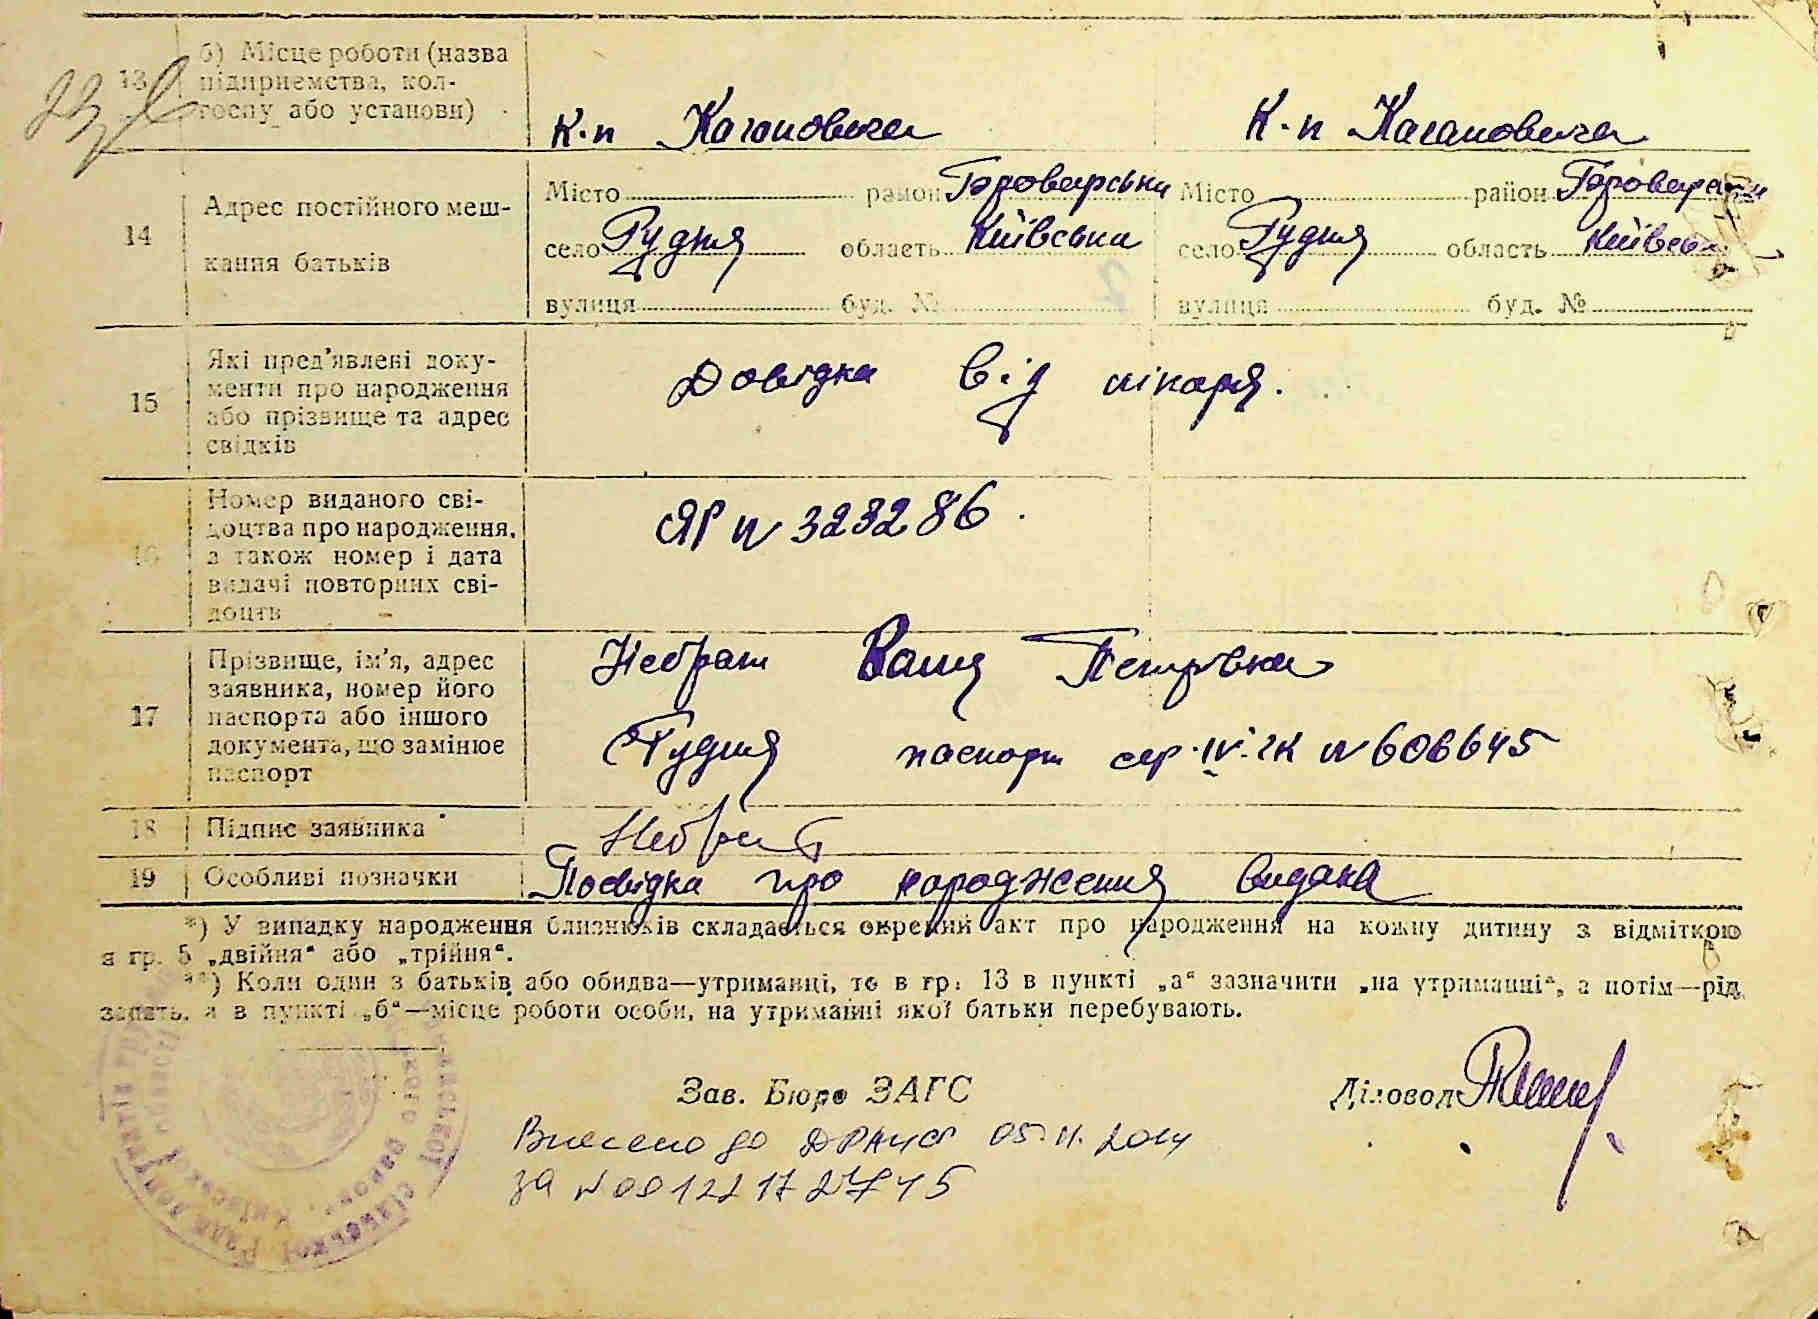 13
б) Місце роботи (назва
підприємства, кол-
госпу або установи)
К-п Кагановича К-п Кагановича
14
Адрес постійного меш-
кання батьків
Місто район Броварський Місто район
село Рудня область Київська село Рудня область
вулиця буд. № вулиця буд. №
15
Які пред'явлені доку-
менти про народження
або прізвище та адрес
свідків
Довідка від лікаря.
16
Номер виданого сві-
доцтва про народження,
а також номер і дата
видачі повторних сві-
доцтв
ЯР № 323286
17
Прізвище, ім'я, адрес
заявника, номер його
паспорта або іншого
документа, що замінює
паспорт
Небрат Петрівна
Рудня паспорт сер. № 606645
18 Підпис заявника Небрат
19 Особливі позначки Посвідка про народження видана
*) У випадку народження близнюків складається окремий акт про народження на кожну дитину з відміткою
в гр. 5 „двійня“ або „трійня“.
**) Коли один з батьків або обидва—утриманці, то в гр. 13 в пункті „а“ зазначити „на утриманні“, а потім—рід
занять, а в пункті „б“—місце роботи особи, на утриманні якої батьки перебувають.
Зав. Бюро ЗАГС Діловод
Внесено до ДРАЦС 05.11.2014
за № 00122172745